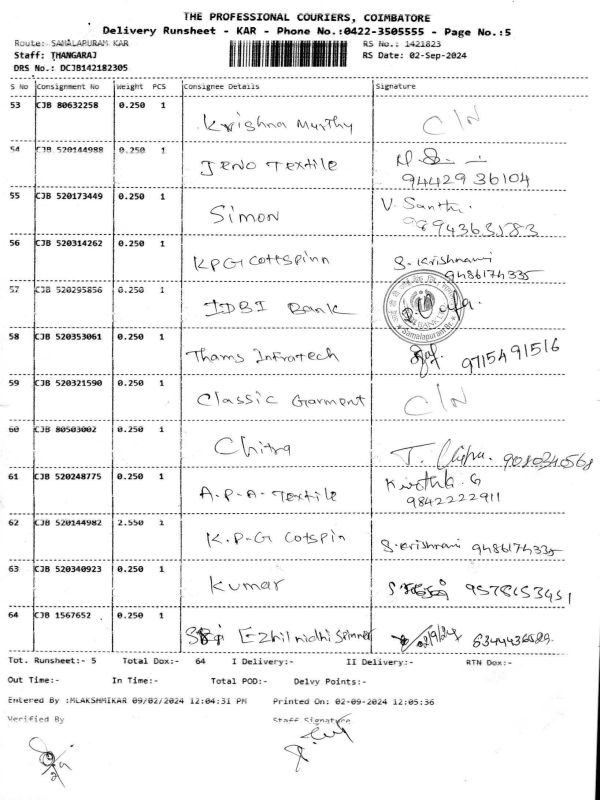 THE PROFESSIONAL COURIERS, COIMBATORE
Delivery Runsheet - KAR - Phone No.:0422-3505555 - Page No.:5
Route: SAMALAPURAM KAR RS No.: 1421823
Staff: THANGARAJ RS Date: 02-Sep-2024
DRS No.: DCJB142182305
S No Consignment No Weight PCS Consignee Details Signature
53 CJB 80632258 0.250 1 Krishna Murthy C/N
54 CJB 520144988 0.250 1 JENO Textile
94429 36104
55 CJB 520173449 0.250 1 Simon V. Santhi
9894363583
56 CJB 520314262 0.250 1 KPG Cottspinn S. Krishnami
9486174335
57 CJB 520295856 0.250 1 IDBI Bank
Samalapuram Br.
58 CJB 520353061 0.250 1 Thams Infratech 9715491516
59 CJB 520321590 0.250 1 Classic Garment C/N
60 CJB 80503002 0.250 1 Chitra T. 9080340568
61 CJB 520248775 0.250 1 A.P.A. Textile
9842222911
62 CJB 520144982 2.550 1 K.P.G Cotspin S. Krishnami 9486174335
63 CJB 520340923 0.250 1 Kumar 9578153451
64 CJB 1567652 0.250 1 Ezhilnidhi Spinner 02/9/24
Tot. Runsheet:- 5 Total Dox:- 64 I Delivery:- II Delivery:- RTN Dox:-
Out Time:- In Time:- Total POD:- Delvy Points:-
Entered By :MLAKSHMIKAR 09/02/2024 12:04:31 PM Printed On: 02-09-2024 12:05:36
Verified By Staff Signature